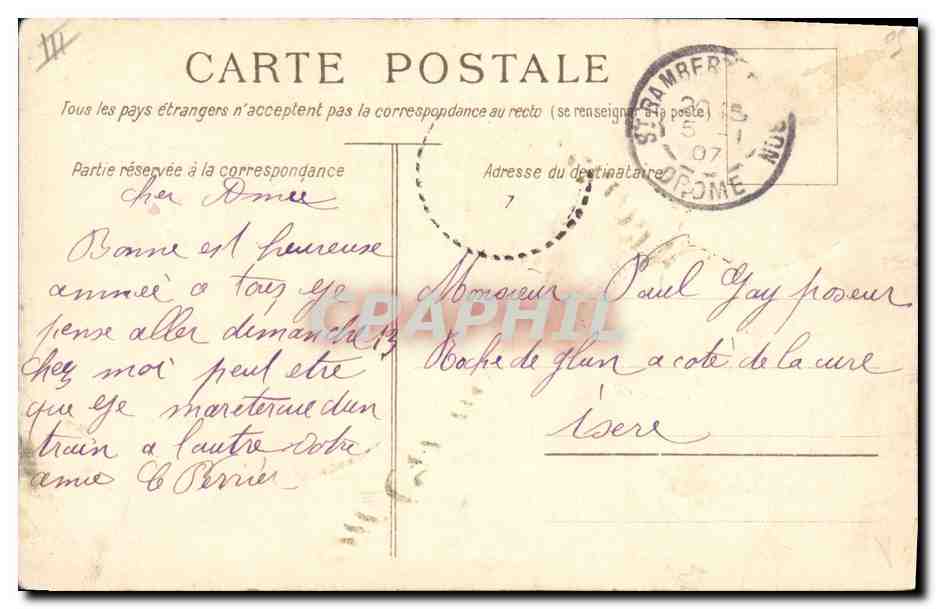 III
CARTE POSTALE
Tous les pays étrangers n'acceptent pas la correspondance au recto (se renseigner à la poste)
Partie réservée à la correspondance
Adresse du destinataire
ST RAMBERT
5 -1
07
DROME
7
cher Amie
Bonne est heureuse
année a toés ege
pense aller démanche 13
chez moi peut etre
que ege mareteraie dun
train a lautre votre
amie C Perrier
Monsieur Paul Gay poseur
Roche de glun a coté de la cure
isere
CPAPHIL